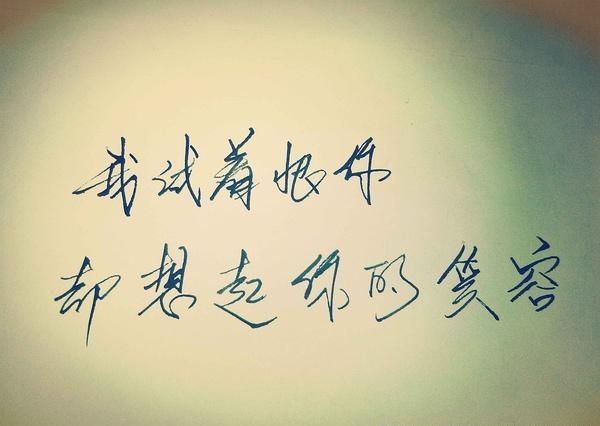 我试着恨你
却想起你的笑容